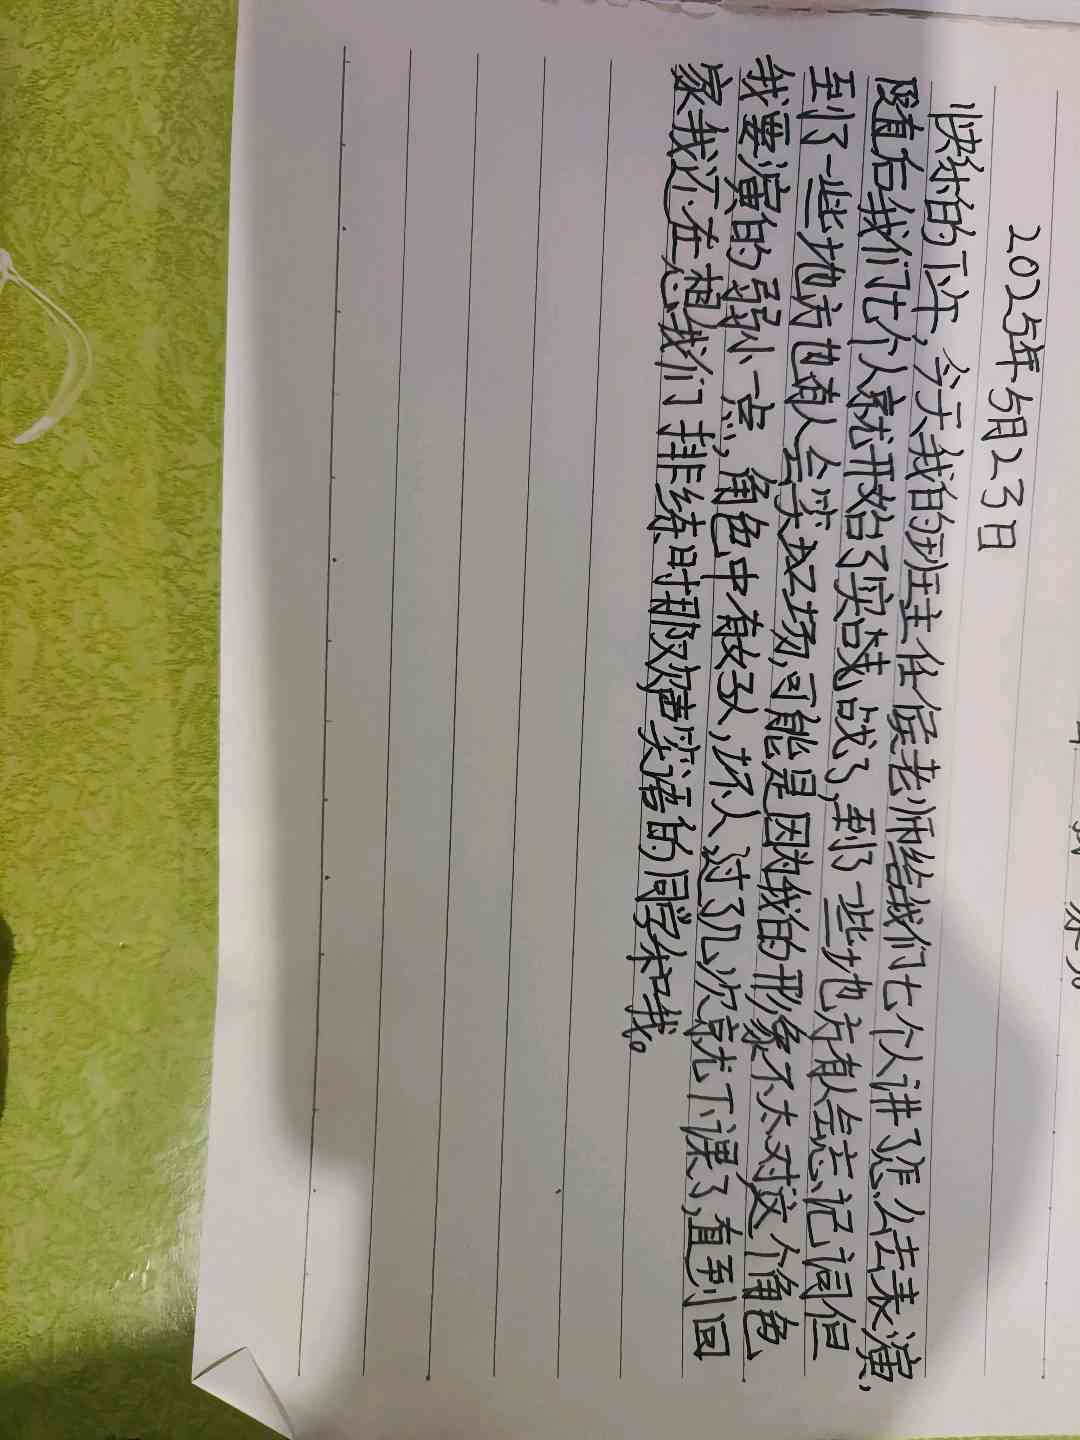 2025年5月23日
快乐的下午,今天我的班主任侯老师给我们七个人讲了怎么去表演,
随后我们七个人就开始了实战,战了,到了一些地方有人会忘记词但
到了一些地方也有人会笑场,可能是因为我的形象不太对这个角色
我要演的弱小一点,角色中有好人,坏人,过了几次就下课了,直到回
家我还在想我们排练时那欢声笑语的同学和我。